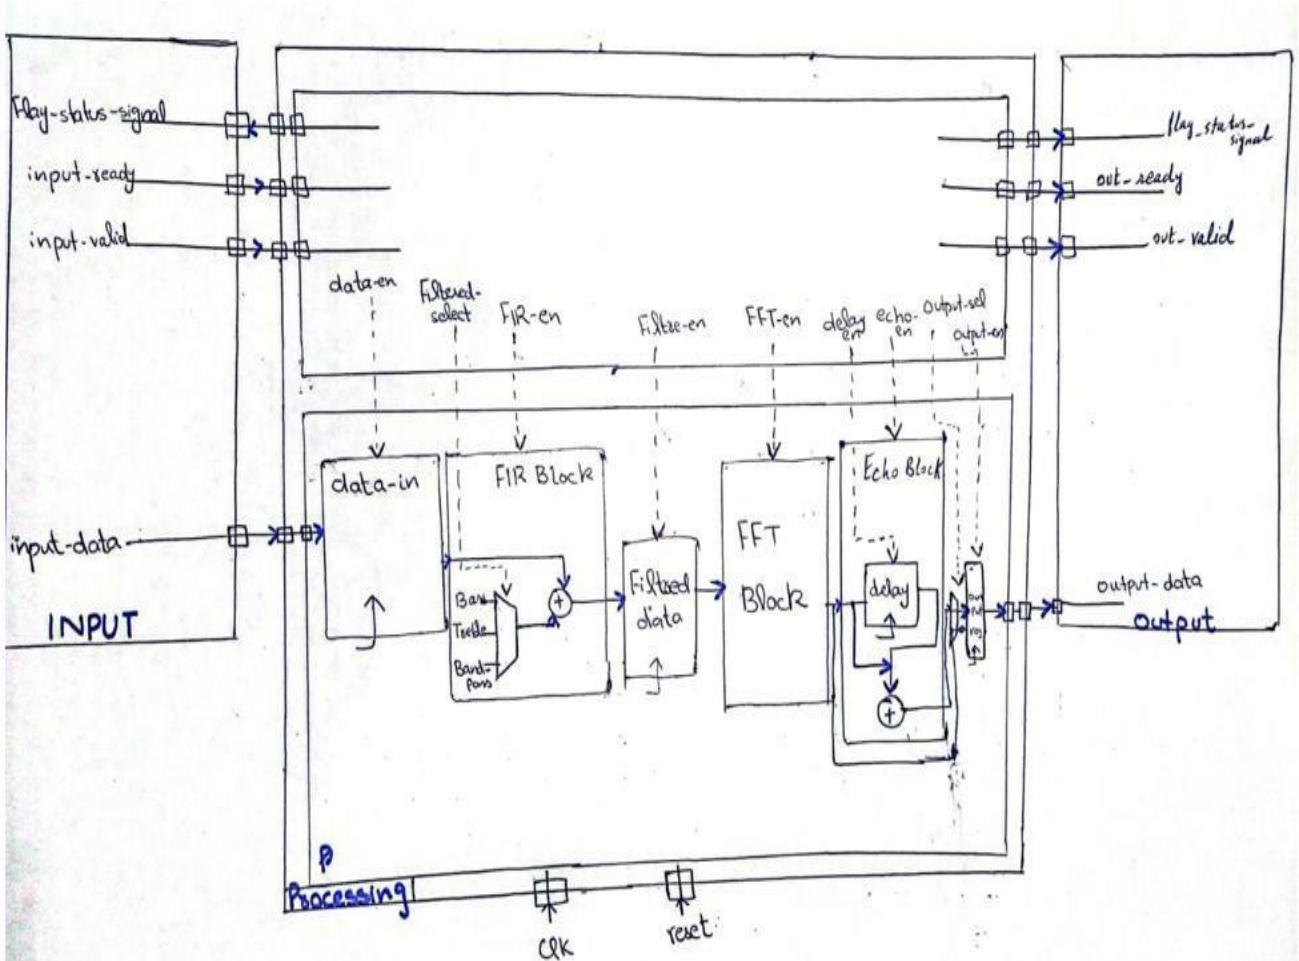 Flag-status-signal
input-ready
input-valid
flag_status-
signal
out-ready
out-valid
data-en
Filtered-
select
FIR-en
Filtre-en
FFT-en
delay
en
echo-
en
output-sel
output-en
data-in
FIR Block
Bass
Treble
Band-
pass
+
Filtred
data
FFT
Block
Echo Block
delay
+
out
reg
input-data
INPUT
output-data
output
P
Processing
clk
reset